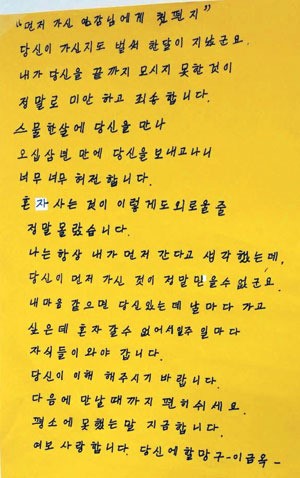 "먼저 가신 안장님에게 첫편지"
당신이 가신지도 벌써 한달이 지났군요.
내가 당신을 끝까지 모시지 못한것이
정말로 미안 하고 죄송합니다.
스물한살에 당신을 만나
오십삼년 만에 당신을 보내고나니
너무 너무 허전합니다.
혼자 사는 것이 이렇게도외로울줄
정말 몰랐습니다.
나는 항상 내가 먼저 간다고 생각했는데,
당신이 먼저 가신 것이 정말 믿을수없군요.
내마음 같으면 당신있는데 날마다 가고
싶은데 혼자갈수 없어서일주 일마다
자식들이 와야 갑니다.
당신이 이해 해주시기 바랍니다.
다음에 만날때까지 편히쉬세요.
평소에 못했는말 지금합니다.
여보 사랑합니다. 당신에할망구-이금옥-